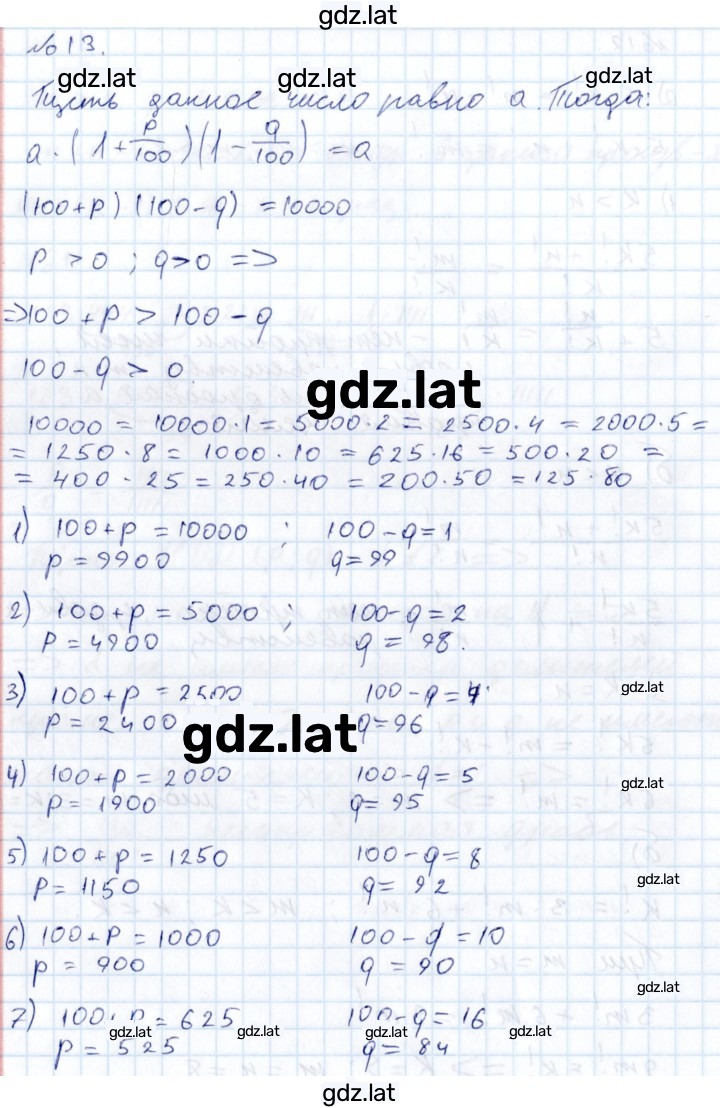 gdz.lat
№13.
gdz.lat gdz.lat gdz.lat
Пусть данное число равно a. Тогда:
a·(1+p/100)(1-q/100)=a
(100+p)(100-q)=10000
p>0; q>0 =>
=>100+p>100-q
100-q>0.
gdz.lat
10000=10000·1=5000·2=2500·4=2000·5=
=1250·8=1000·10=625·16=500·20=
=400·25=250·40=200·50=125·80
1) 100+p=10000; 100-q=1
p=9900 q=99
2) 100+p=5000; 100-q=2
p=4900 q=98.
3) 100+p=2500 100-q=4 gdz.lat
p=2400 q=96
gdz.lat
4) 100+p=2000 100-q=5 gdz.lat
p=1900 q=95
5) 100+p=1250 100-q=8
p=1150 q=92 gdz.lat
6) 100+p=1000 100-q=10
p=900 q=90
gdz.lat
7) 100+p=625 100-q=16
gdz.lat gdz.lat gdz.lat gdz.lat
p=525 q=84
gdz.lat